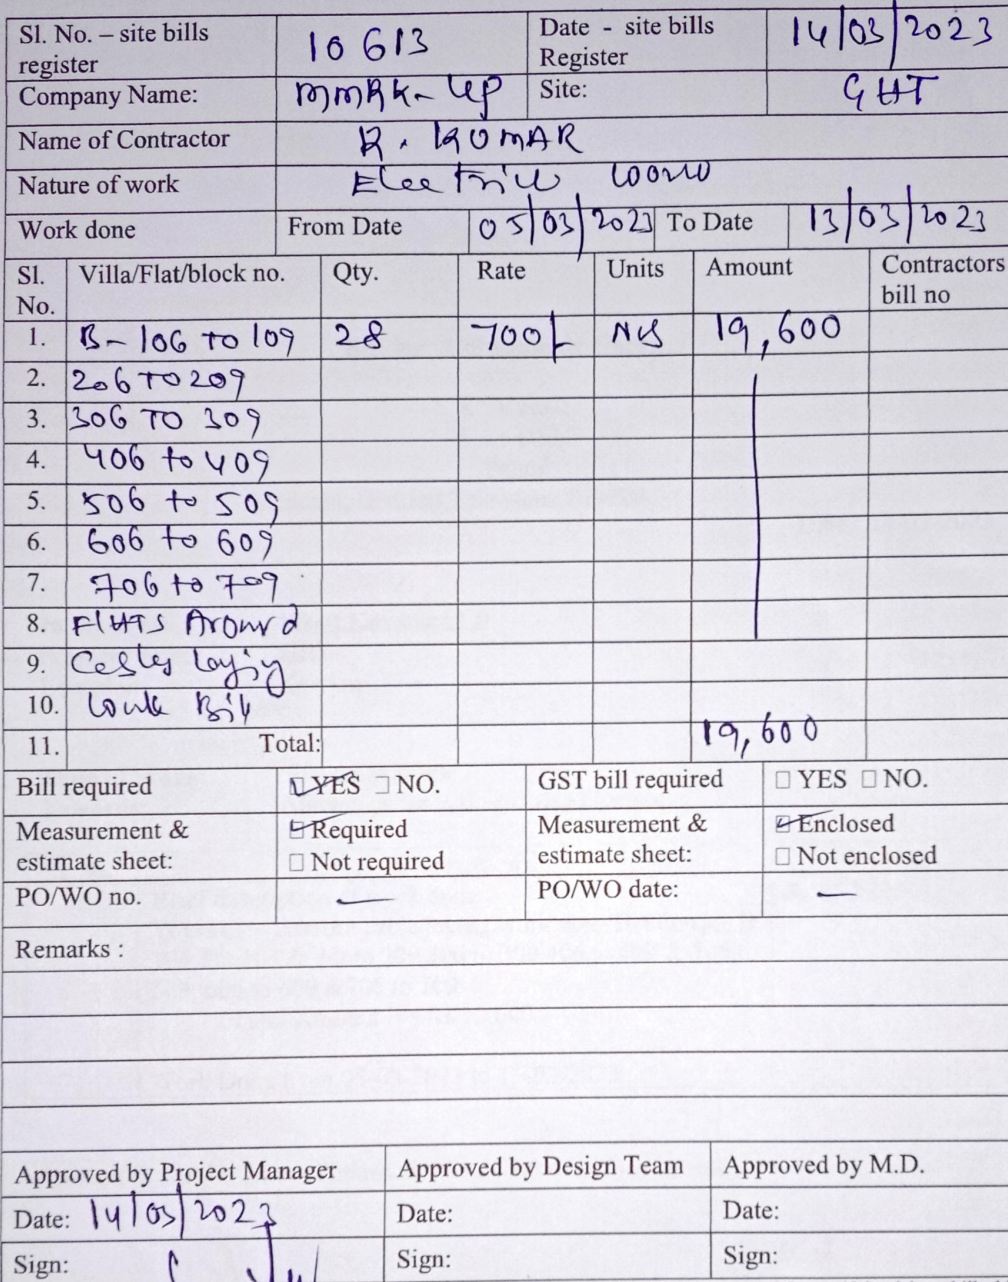 Sl. No. – site bills register 10613 Date - site bills Register 14/03/2023
Company Name: MMRK-UP Site: GHT
Name of Contractor R. KUMAR
Nature of work
Work done From Date 05/03/2023 To Date 13/03/2023
Sl. No. Villa/Flat/block no. Qty. Rate Units Amount Contractors bill no
1. B-106 TO 109 28 700/ NS 19,600
2. 206 TO 209
3. 306 TO 309
4. 406 to 409
5. 506 to 509
6. 606 to 609
7. 706 to 709
8.
9.
10.
11. Total: 19,600
Bill required ☑ YES ☐ NO. GST bill required ☐ YES ☐ NO.
Measurement & estimate sheet: ☑ Required ☐ Not required Measurement & estimate sheet: ☑ Enclosed ☐ Not enclosed
PO/WO no. – PO/WO date: –
Remarks :
Approved by Project Manager Approved by Design Team Approved by M.D.
Date: 14/03/2023 Date: Date:
Sign: Sign: Sign: